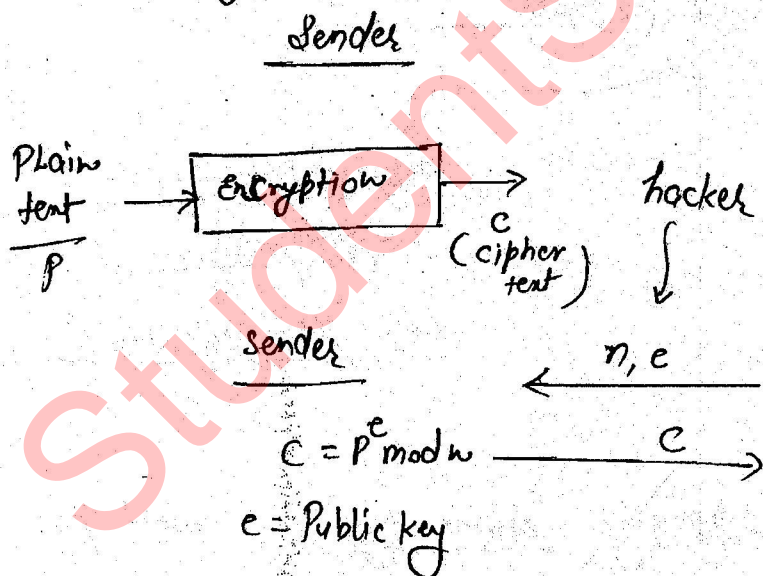 Sender
Plain
text
P
Encryption
C
(cipher
text)
hacker
Sender
n, e
C = P^e mod n
C
e = Public key
Students